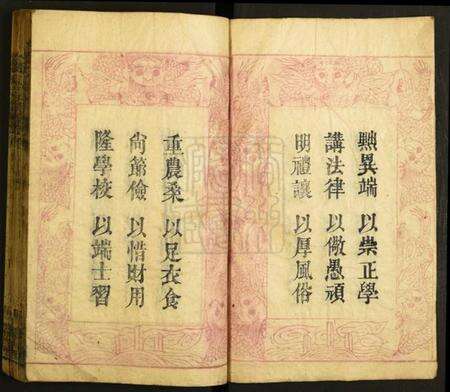 黜異端 以崇正學
講法律 以儆愚頑
明禮讓 以厚風俗
重農桑 以足衣食
尚節儉 以惜財用
隆學校 以端士習